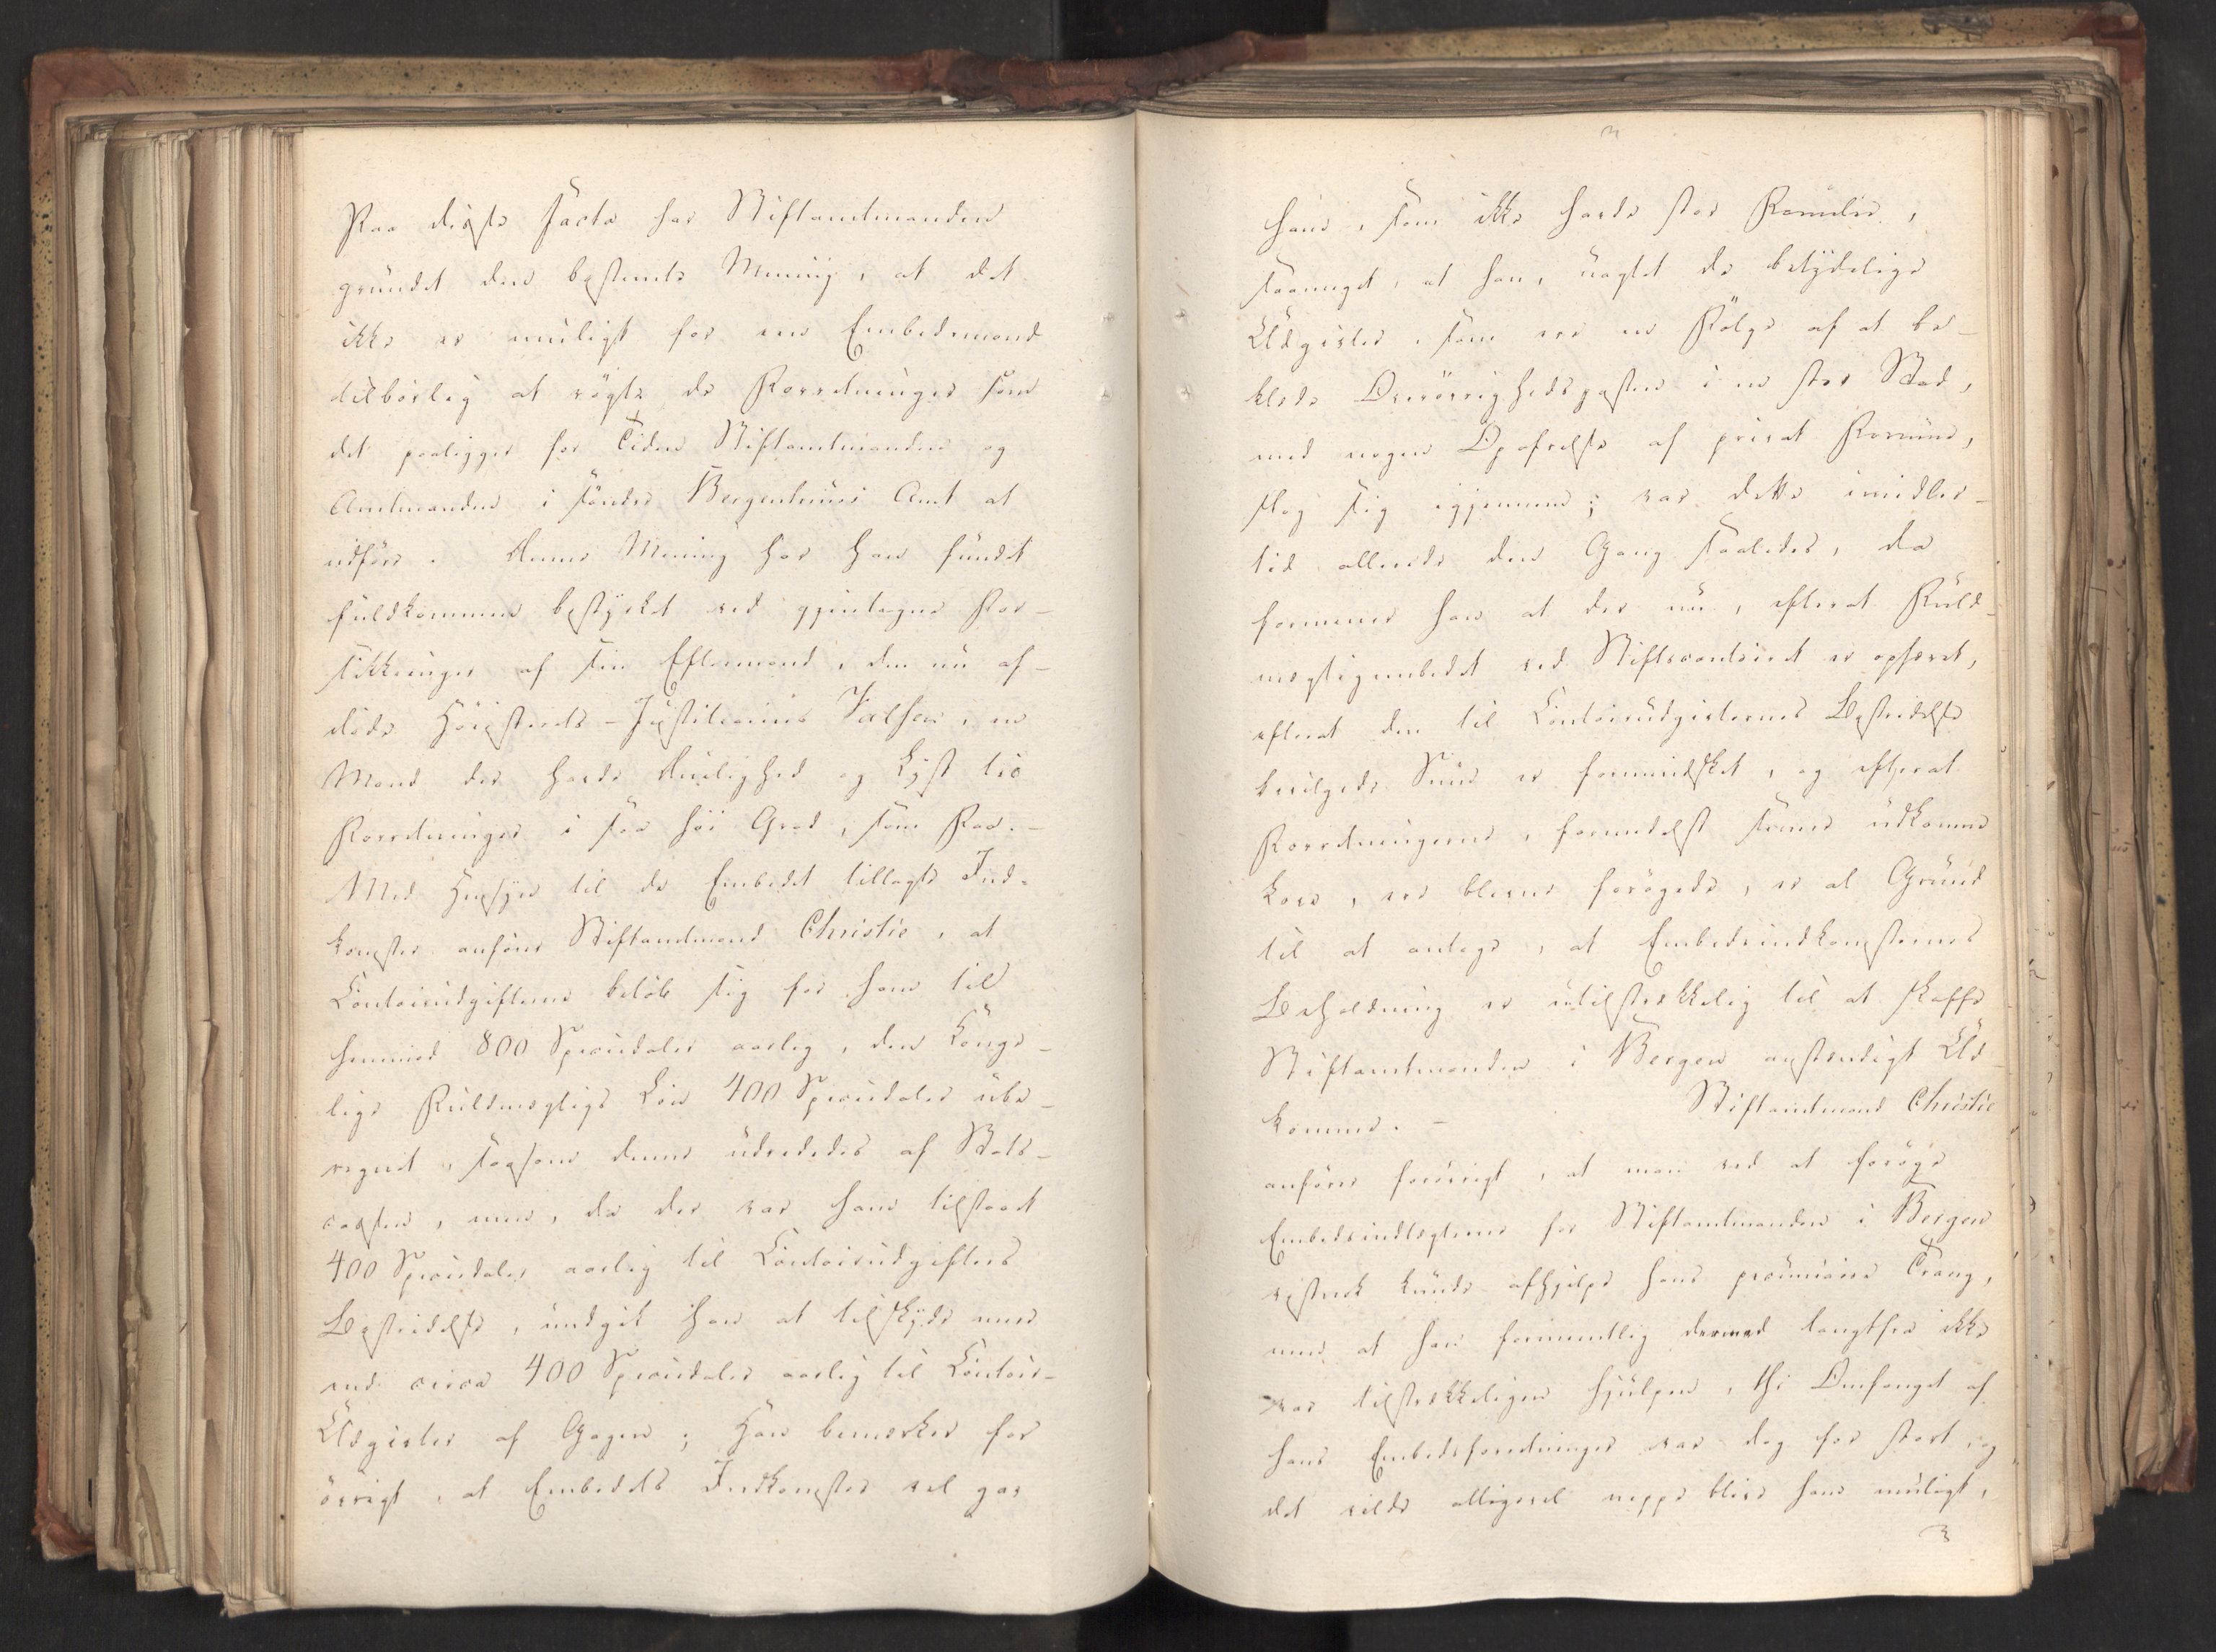 Paa disse Facta har Stiftamtmanden
grundet den bestemte Mening, at det
ikke er muligt for een Embedsmand
tilbørlig at røgte de Forretninger som
det paaligger for Tiden Stiftamtmanden og
Amtmanden i søndre Bergenhuus Amt at
udføre. Denne Mening har han fundet
fuldkommen bestyrket ved gjentagne For-
sikkringer af sin Eftermand, den nu af-
døde Høiesterets-Justitiarius Falsen, en
Mand der havde Duelighed og Lyst til
Forretninger i saa høi Grad, som Faa.-
Med Hensyn til de Embedet tillagte Ind-
komster anfører Stiftamtmand Christie, at
Contoirudgifterne beløb sig for ham til
henimod 800 Speciedaler aarlig, den Konge-
lige Fuldmægtigs Løn 400 Speciedaler ube-
regnet, saasom denne udrededes af Stats-
cassen, men, da der var ham tilstaaet
400 Speciedaler aarlig til Contoirudgifters
Bestridelse, undgik han at tilskyde meer
end circa 400 Speciedaler aarlig til Contoir-
Udgivter af Gagen; Han bemærker for
øvrigt, at Embedets Indkomster vel gav
ham, som ikke havde stor Familie,
saameget, at han, uagtet de betydelige
Udgivter, som ere en Følge af at be-
klæde Overøvrighedsposten i en stor Stad,
med nogen Opofrelse af privat Formue,
slog sig igjennem; var dette imidler-
tid allerede den Gang saaledes, da
formener han at der nu, efterat Fuld-
mægtigembedet ved Stiftscontoiret er ophævet,
efterat den til Contoirudgivternes Bestridelse
bevilgede Sum er formindsket, og efterat
Forretningerne, formedelst senere udkomne
Love, ere blevne forøgede, er al Grund
til at antage, at Embedsindkomsternes
Beholdning er utilstrækkelig til at skaffe
Stiftamtmanden i Bergen anstændigt Ud-
komme. - Stiftamtmand Christie
anfører forøvrigt, at man ved at forøge
Embedsindtægterne for Stiftamtmanden i Bergen
vistnok kunde afhjelpe hans pecuniaire Trang,
men at han formeentlig dermed langtfra ikke
var tilstrækkeligen hjulpen, thi Omfanget af
hans Embedsforretninger var dog for stort, og
det vilde alligevel neppe blive ham muligt,